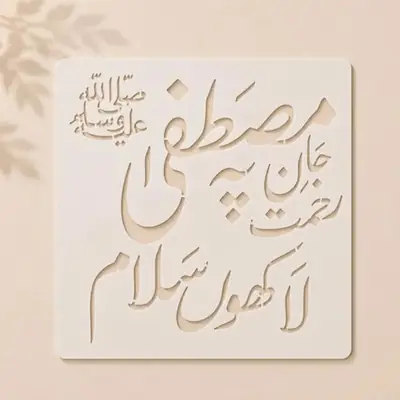 مصطفیٰ
صلی اللہ علیہ وسلم
جانِ رحمت پہ
لاکھوں سلام